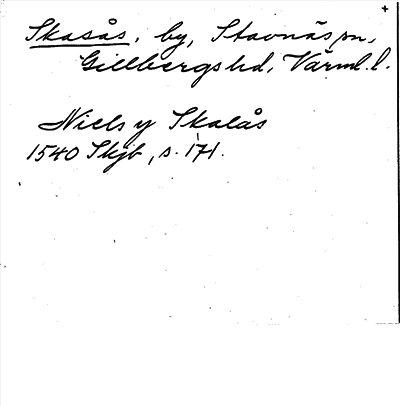 +
Skasås, by, Stavnäs sn,
Gillbergs hd, Värml. l.
Niels y Skalås
1540 Skjb, s. 171.